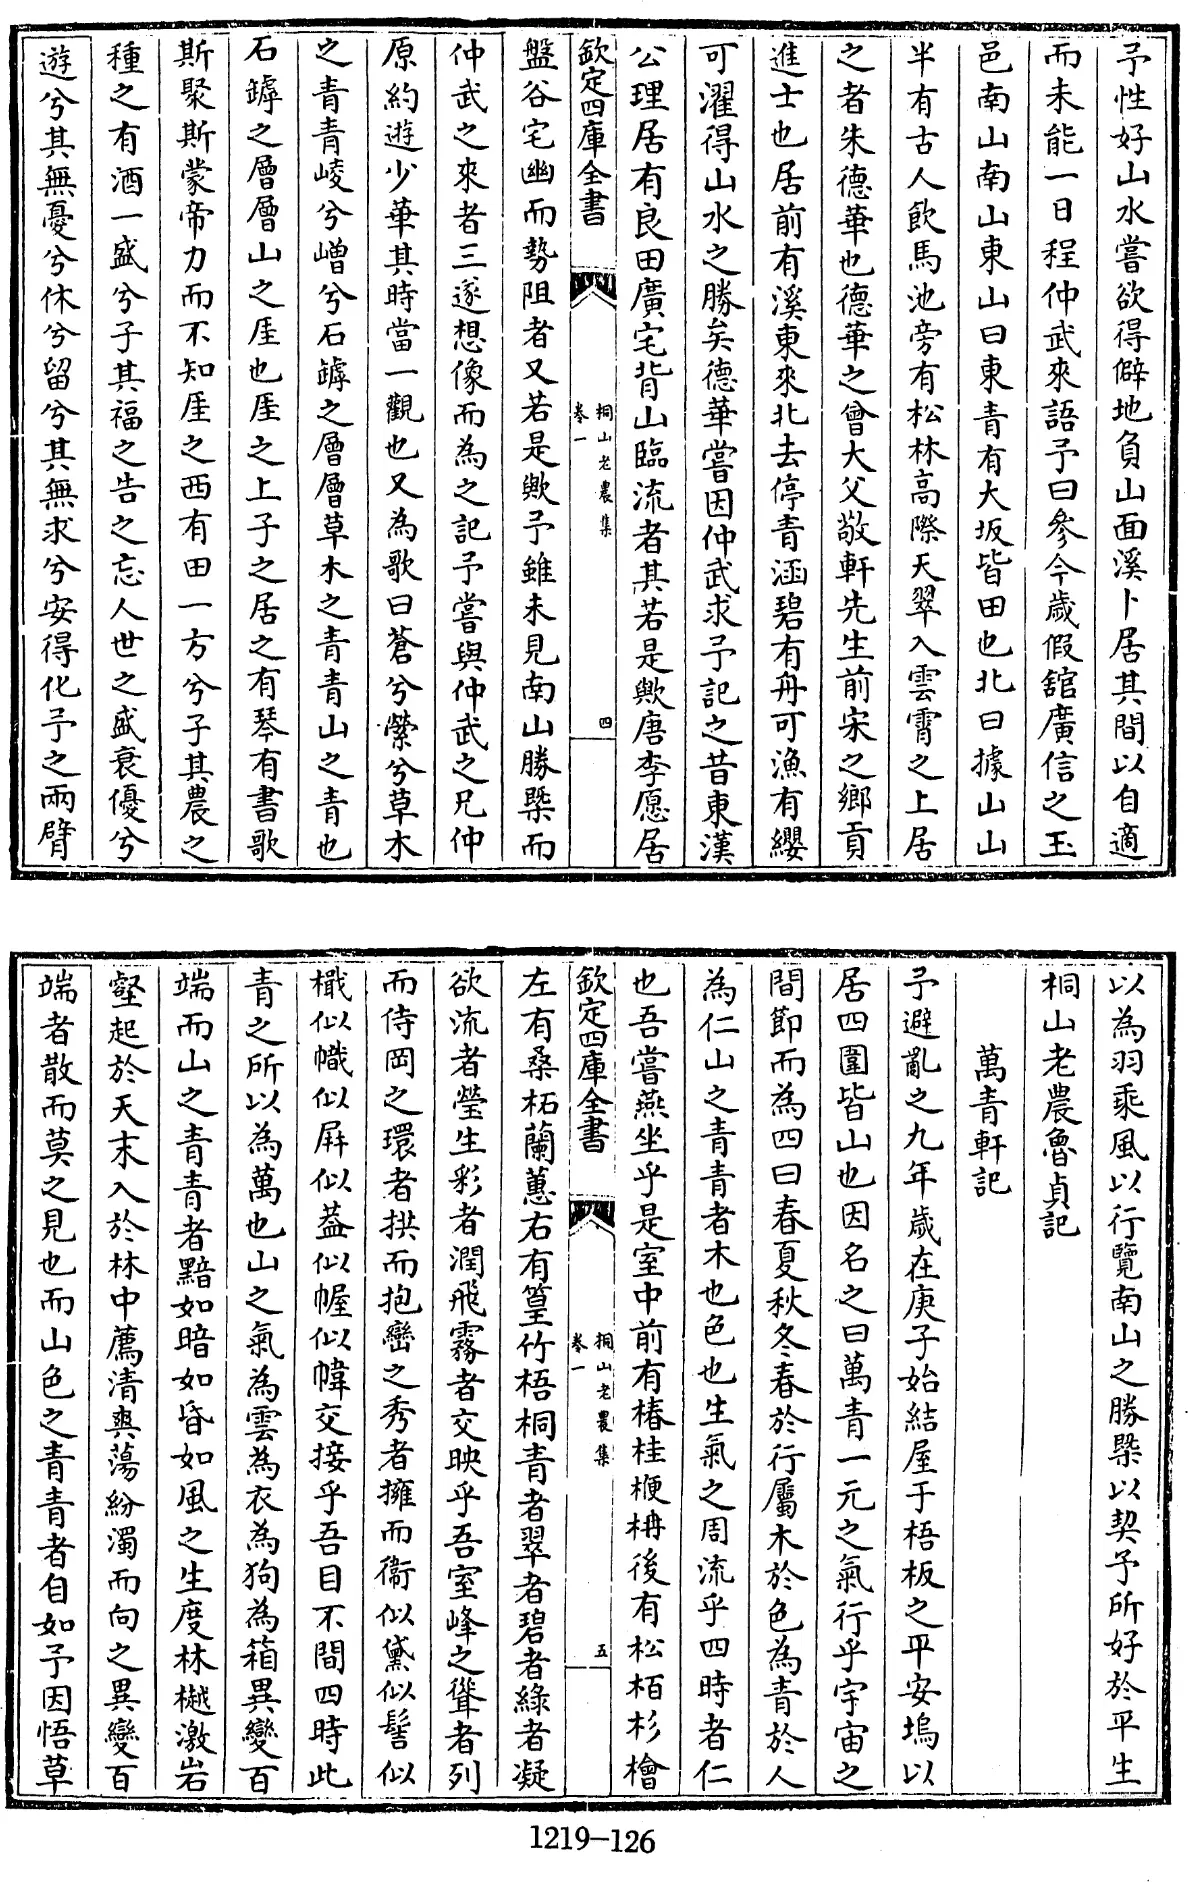 予性好山水嘗欲得僻地負山面溪卜居其間以自適
而未能一日程仲武來語予曰參今歲假舘廣信之玉
邑南山南山東山曰東青有大坂皆田也北曰據山山
半有古人飲馬池旁有松林高際天翠入雲霄之上居
之者朱德華也德華之曾大父敬軒先生前宋之鄉貢
進士也居前有溪東來北去停青涵碧有舟可漁有纓
可濯得山水之勝矣德華嘗因仲武求予記之昔東漢
公理居有良田廣宅背山臨流者其若是歟唐李愿居
欽定四庫全書
桐山老農集
卷一
四
盤谷宅幽而勢阻者又若是歟予雖未見南山勝槩而
仲武之來者三遂想像而為之記予嘗與仲武之兄仲
原約遊少華其時當一觀也又為歌曰蒼兮縈兮草木
之青青崚兮嶒兮石罅之層層草木之青青山之青也
石罅之層層山之厓也厓之上子之居之有琴有書歌
斯聚斯蒙帝力而不知厓之西有田一方兮子其農之
種之有酒一盛兮子其福之告之忘人世之盛衰優兮
遊兮其無憂兮休兮留兮其無求兮安得化予之兩臂
以為羽乘風以行覽南山之勝槩以契予所好於平生
桐山老農魯貞記
萬青軒記
予避亂之九年歲在庚子始結屋于梧板之平安塢以
居四圍皆山也因名之曰萬青一元之氣行乎宇宙之
間節而為四曰春夏秋冬春於行屬木於色為青於人
為仁山之青青者木也色也生氣之周流乎四時者仁
也吾嘗燕坐乎是室中前有椿桂楩枏後有松栢杉檜
欽定四庫全書
桐山老農集
卷一
五
左有桑柘蘭蕙右有篁竹梧桐青者翠者碧者綠者凝
欲流者瑩生彩者潤飛霧者交映乎吾室峰之聳者列
而侍岡之環者拱而抱巒之秀者擁而衞似黛似髻似
檝似幟似屏似葢似幄似幃交接乎吾目不間四時此
青之所以為萬也山之氣為雲為衣為狗為箱異變百
端而山之青青者黯如暗如昏如風之生度林樾激岩
壑起於天末入於林中薦清爽蕩紛濁而向之異變百
端者散而莫之見也而山色之青青者自如予因悟草
1219-126